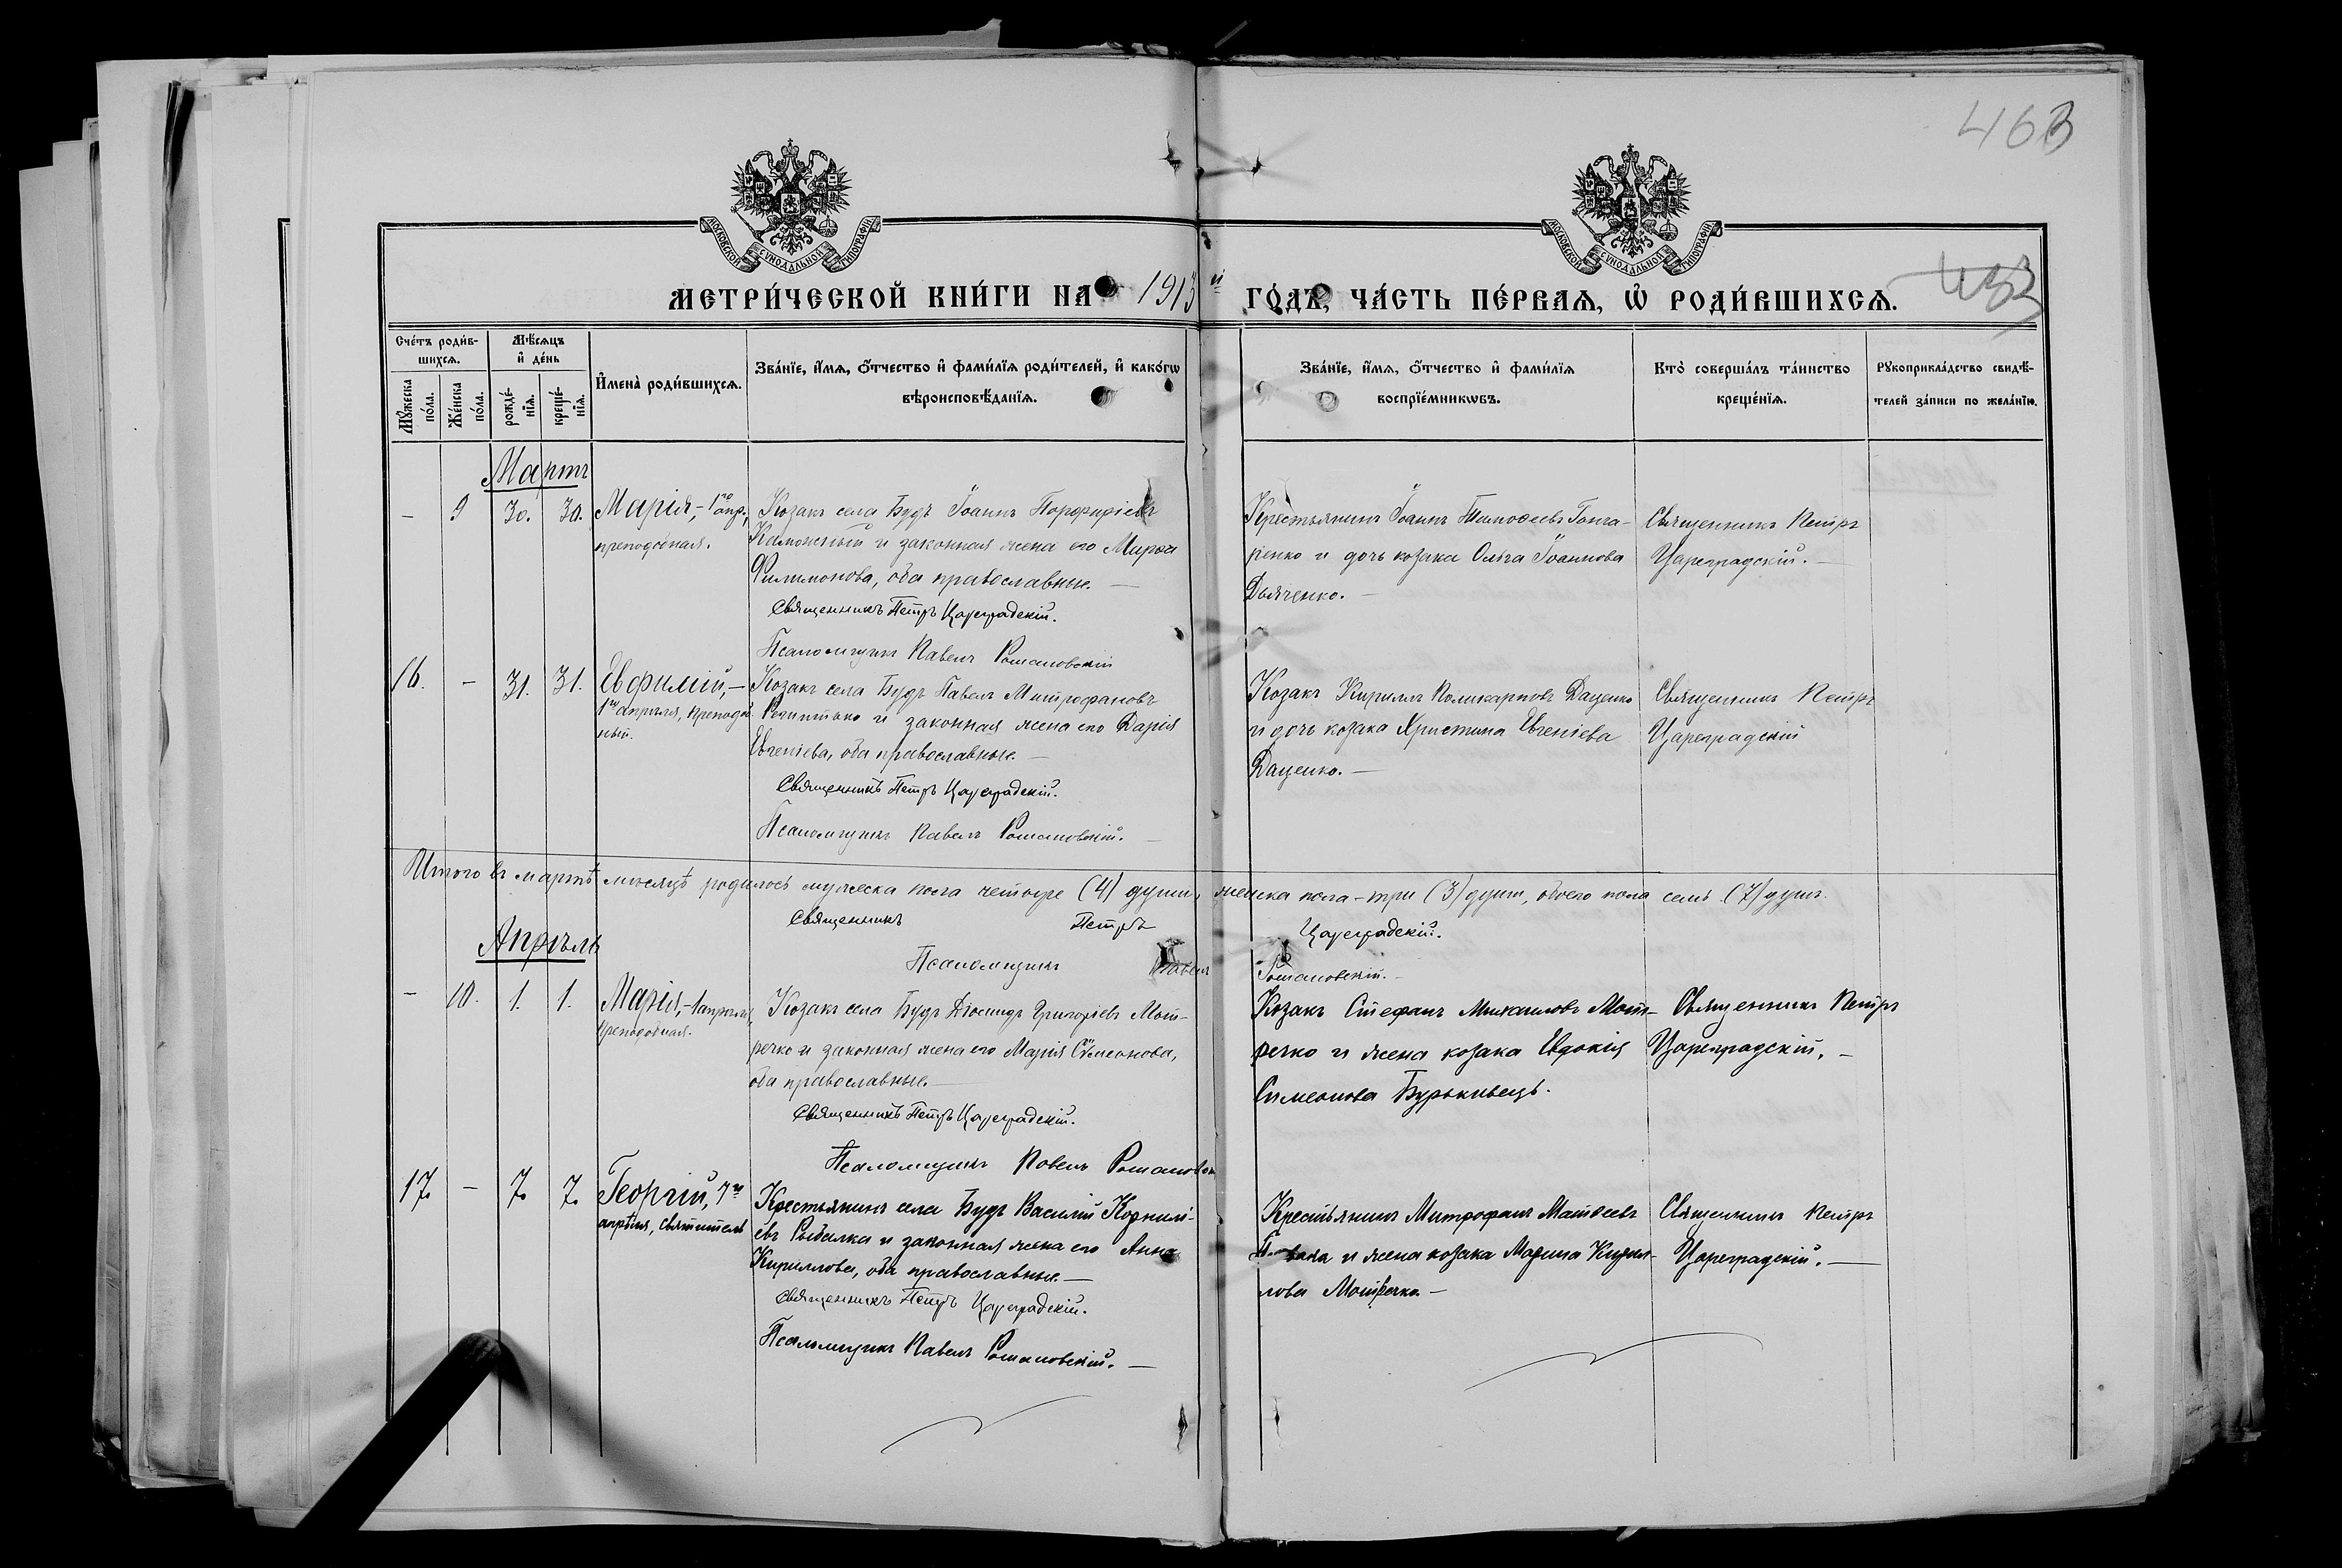 463
МОСКОВСКОЙ СѴНОДАЛЬНОЙ ТИПОГРАФІИ
МОСКОВСКОЙ СѴНОДАЛЬНОЙ ТИПОГРАФІИ
МЕТРИ́ЧЕСКОЙ КНИ́ГИ НА 1913 й ГО́ДЪ, ЧА́СТЬ ПЕ́РВАѦ, Ѽ РОДИ́ВШИХСѦ.
Сче́тъ роди́в-
шихсѧ.
Мѣ́сѧцъ
и҆ де́нь
Мꙋ́жеска
по́ла.
Же́нска
по́ла.
рожде́-
нїѧ.
креще́-
нїѧ.
И҆мена̀ роди́вшихсѧ.
Зва́нїе, и҆́мѧ, ѻ҆́тчество и҆ фами́лїѧ роди́телей, и҆ како́гѡ
вѣроисповѣ́данїѧ.
Зва́нїе, и҆́мѧ, ѻ҆́тчество и҆ фами́лїѧ
воспрїе́мникѡвъ.
Кто̀ соверша́лъ та́инство
креще́нїѧ.
Рꙋкоприкла́дство свидѣ́-
телей за́писи по жела́нїю.
Мартъ
— 9 30. 30. Марія,- 1го апр.,
преподобная.
Козакъ села Будъ Іоаннъ Порфиріевъ
и законная жена его Марѳа
Филимонова, оба православные. —
Священникъ Петръ Цареградскій.
Псаломщикъ Павелъ Романовскій
Крестьянинъ Іоаннъ Тимоѳеевъ Гонча-
ренко и дочь козака Ольга Іоаннова
Дьяченко. —
Священникъ Петръ
Цареградскій. —
16. — 31. 31. Евфимій, —
1го апрѣля, преподоб-
ный.
Козакъ села Будъ Павелъ Митрофановъ
и законная жена его Дарія
Евгеніева, оба православные. —
Священникъ Петръ Цареградскій.
Псаломщикъ Павелъ Романовскій. —
Козакъ Кириллъ Поликарповъ Даценко
и дочь козака Христина Евгеніева
Даценко. —
Священникъ Петръ
Цареградскій
Итого въ мартѣ мѣсяцѣ родилось мужеска пола четыре (4) души, женска пола - три (3) души, обоего пола семь (7) душъ.
Священникъ Петръ Цареградскій.
Псаломщикъ Павелъ Романовскій. —
Апрѣль
— 10. 1. 1. Марія,- 1 апрѣля,
преподобная.
Козакъ села Будъ Діомидъ Григоріевъ Мот-
речко и законная жена его Марія Сѵмеонова,
оба православные. —
Священникъ Петръ Цареградскій.
Псаломщикъ Павелъ Романовскій
Козакъ Стефанъ Михаиловъ Мот-
речко и жена козака Евдокія
Симеонова Бурьковецъ.
Священникъ Петръ
Цареградскій. —
17. — 7. 7. Георгій, 7го
апрѣля, святитель
Крестьянинъ села Будъ Василій Корнилі-
евъ Рыбалка и законная жена его Анна
Кириллова, оба православные. —
Священникъ Петръ Цареградскій.
Псаломщикъ Павелъ Романовскій. —
Крестьянинъ Митрофанъ Матѳеевъ
и жена козака Марина Кирил-
лова Мотречко —
Священникъ Петръ
Цареградскій. —